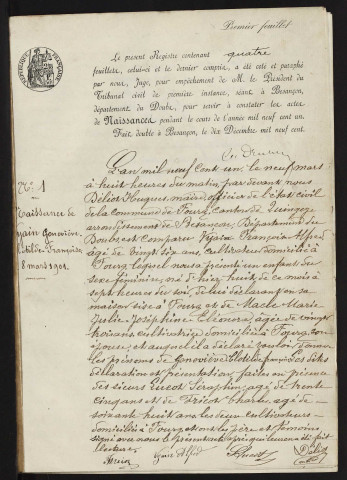 Premier feuillet
RÉPUBLIQUE FRANÇAISE
Le présent Registre contenant quatre
feuillets, celui-ci et le dernier compris, a été coté et paraphé
par nous, Juge, pour empêchement de M. le Président du
Tribunal civil de première instance, séant à Besançon,
département du Doubs, pour servir à constater les actes
de Naissances pendant le cours de l'année mil neuf cent un.
Fait double à Besançon, le dix Décembre mil neuf cent.
No 1
Naissance de
Clotilde Françoise
8 mars 1901
L'an mil neuf cent un le neuf mars
à huit heures du matin, par devant nous
Béliot Hugues, maire, officier de l'état civil
de la commune de Fourg, canton de Quingey
arrondissement de Besançon, Département du
Doubs est comparu François Alfred
âgé de vingt six ans, cultivateur domicilié à
Fourg lequel nous a présenté un enfant du
sexe féminin, né le huit de ce mois à
sept heures du soir, de lui déclarant en sa
maison sise à Fourg et de Marie
Julie Joséphine âgée de vingt
trois ans, cultivatrice domiciliée à Fourg, son
épouse, et auquel il a déclaré vouloir donner
les prénoms de Geneviève Clotilde Les dites
déclaration et présentation faites en présence
des sieurs Séraphin, âgé de trente
cinq ans et de Charles âgé de
soixante huit ans les deux cultivateurs
domiciliés à Fourg et ont les père et témoins
signé avec nous le présent acte après que lecture a été faite